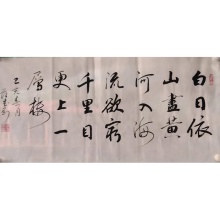 白日依
山盡黄
河入海
流欲窮
千里目
更上一
層樓